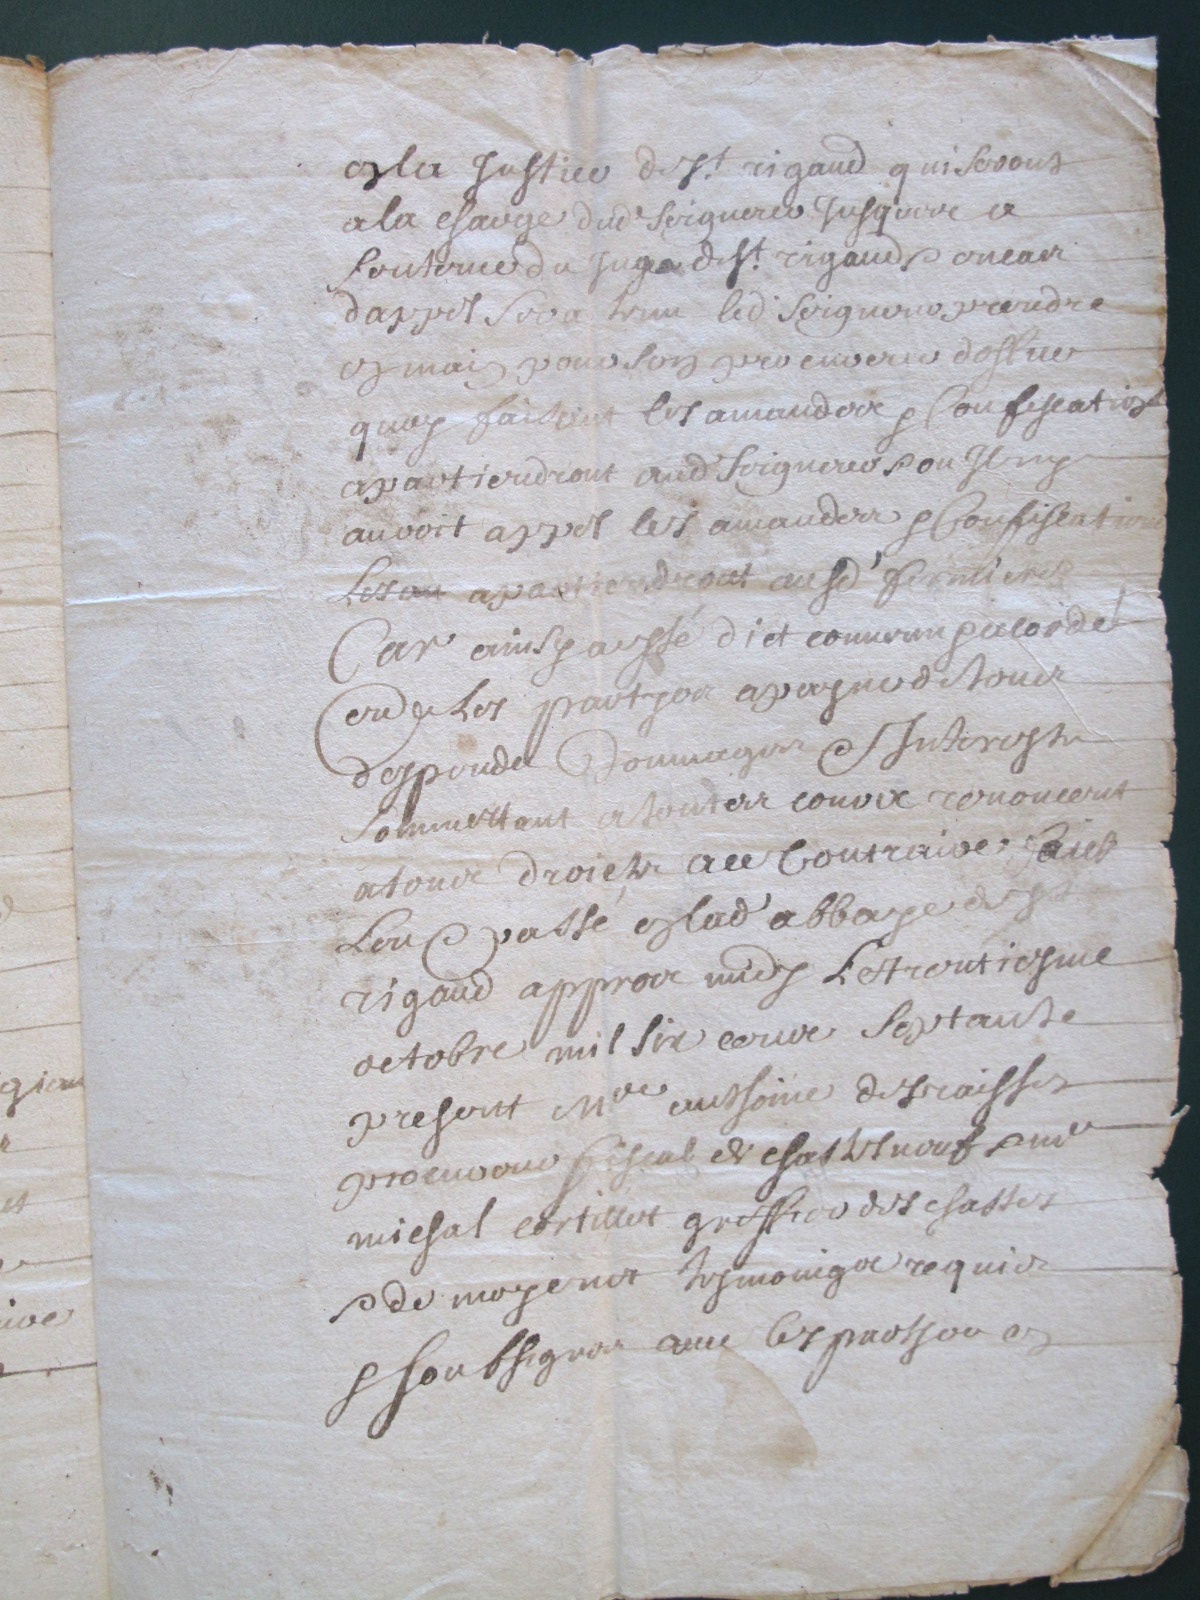 en la Justice de St. rigaud qui seront
a la charge dud Seigneur Jusques a
sentence du Juge de St. rigaud et en cas
dappel sera tenu led Seigneur prendre
en main pour son procureur doffice
quoy faisant les amandes et Confiscation
apartiendront aud Seigneur et ou Il ny
auroit appel les amandes et Confiscation
apartiendront ausd fermiers
Car ainsy a esté dict convenu et acordé
entre Les partyes a payne de tous
despends Dommages et Interests
Sommettant a toutes cours renoncent
a tous droicts au Contraire faict
Leu et passé en lad abbaye de St
rigaud appres midy Le trentiesme
octobre mil six cens septante
present Mre anthoine des raisses
procureur fiscal de chasteauneuf et me
michal cortillet greffier des chasses
et de moyenes tesmoings requis
et soubsignes avec les partyes en